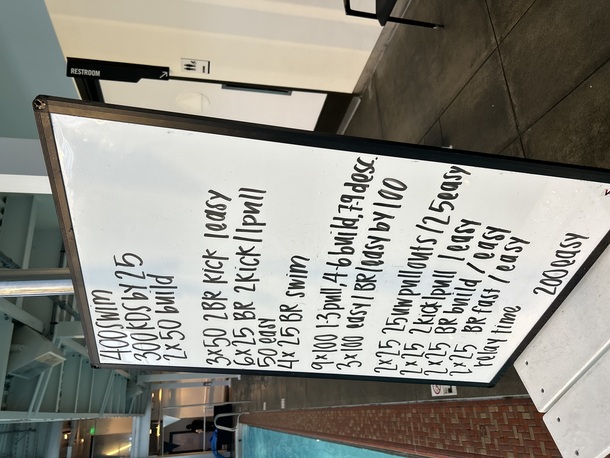 RESTROOM
400 swim
300 KDS by 25
2x50 build
3x50 2BR kick 1easy
6x25 BR 2kick 1pull
50 easy
4x 25 BR swim
9x100 1-3 pull, 4-6 build, 7-9 desc.
3x100 easy/BR/easy by 100
2x25 25uw pullouts/25easy
2x25 2kick1pull / easy
2x25 BR build / easy
2x25 BR fast / easy
relay time
200 easy